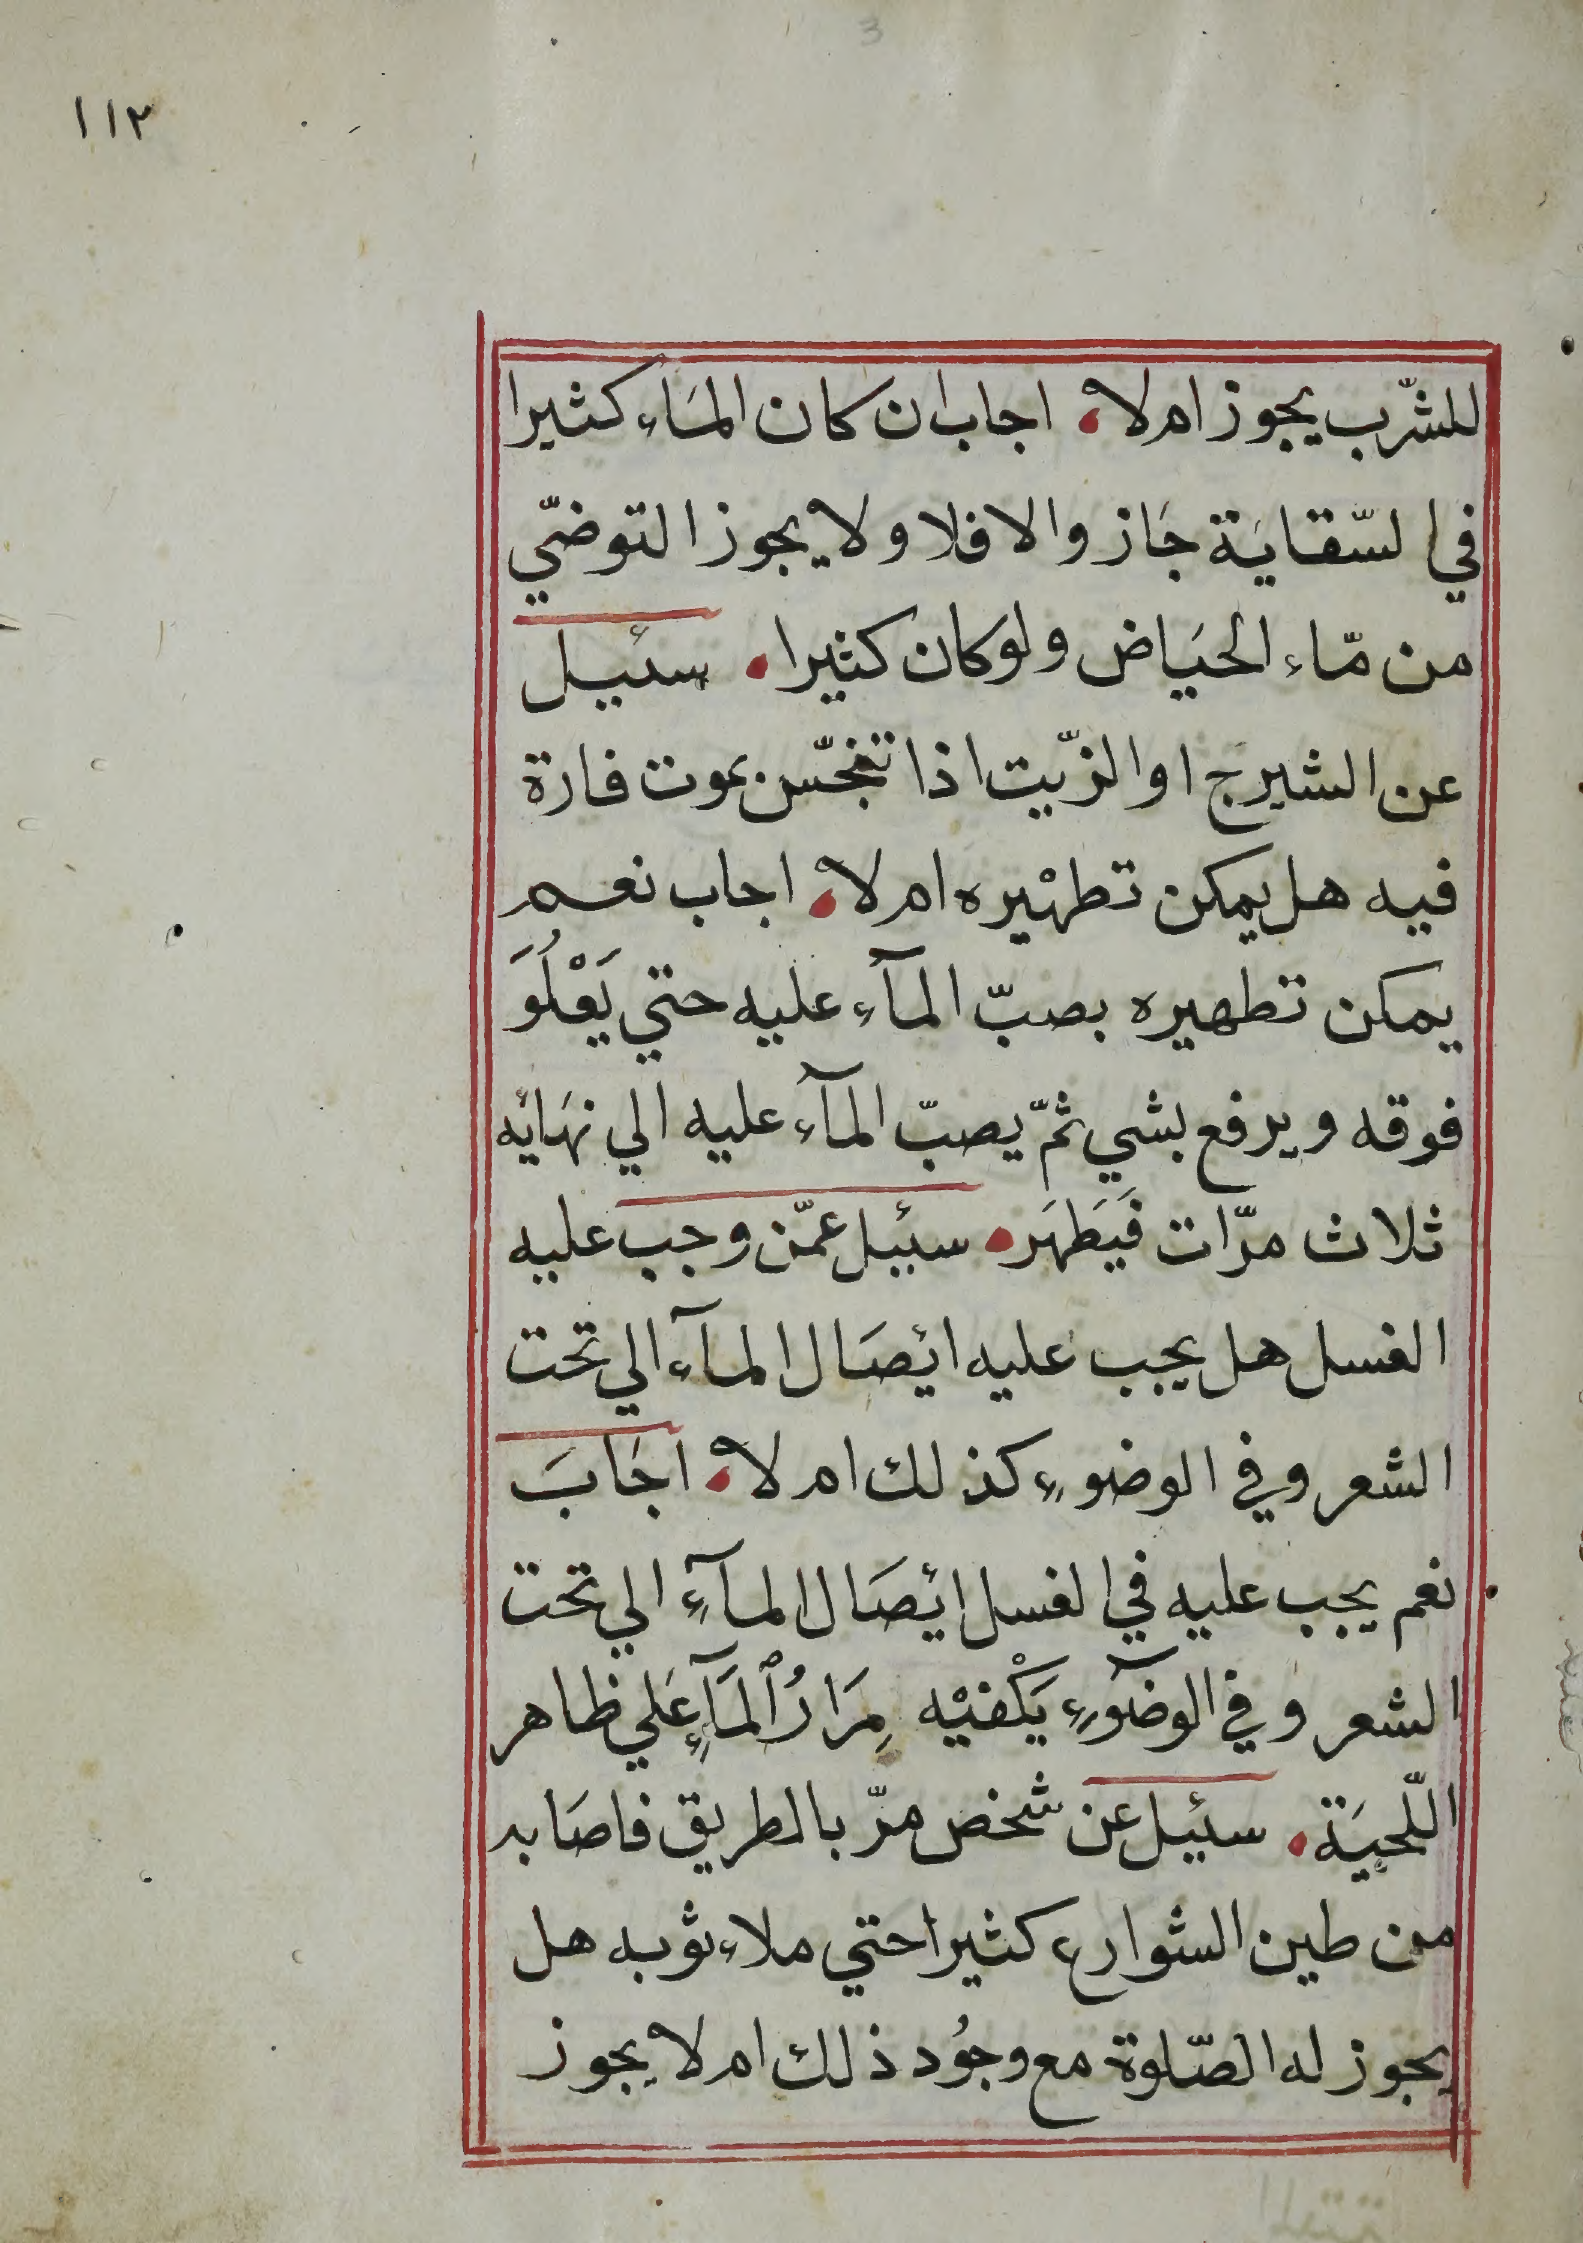 ١١٢
للشّرب يجوز ام لا اجاب ان كان المَاء كثيرا
في السّقايَة جَاز والا فلا ولا يجوز التوضّي
من مّاء الحيَاض ولو كان كثيرا سئيل
عن الشيرج او الزّيت اذا تنجّس بموت فارة
فيه هل يمكن تطهْيره ام لا اجاب نعم
يمكن تطهيره بصبّ المآء عليه حتي يَعْلُوَ
فوقه ويرفع بشي ثمّ يصبّ المآء عليه الي نهَائه
ثلاث مرّات فَيَطهَر سئيل عمّن وجب عليه
الغسل هل يجب عليه ائصَال المآء الي تحت
الشعر وفي الوضوءِ كذلك ام لا اجَابَ
نعم يجب عليه في الغسل ائصَال المآءِ الي تحت
الشعر وفي الوضوٓءِ يَكْفيْه مِرَارُ ٱلمَآءِ عَلي ظاهر
اللّحيَة سئيل عن شخص مرّ بالطريق فاصَابه
من طين الشوارع كثيرا حتي ملاء ثوبه هل
يجوز له الصّلوة مع وجُود ذلك ام لا يجوز